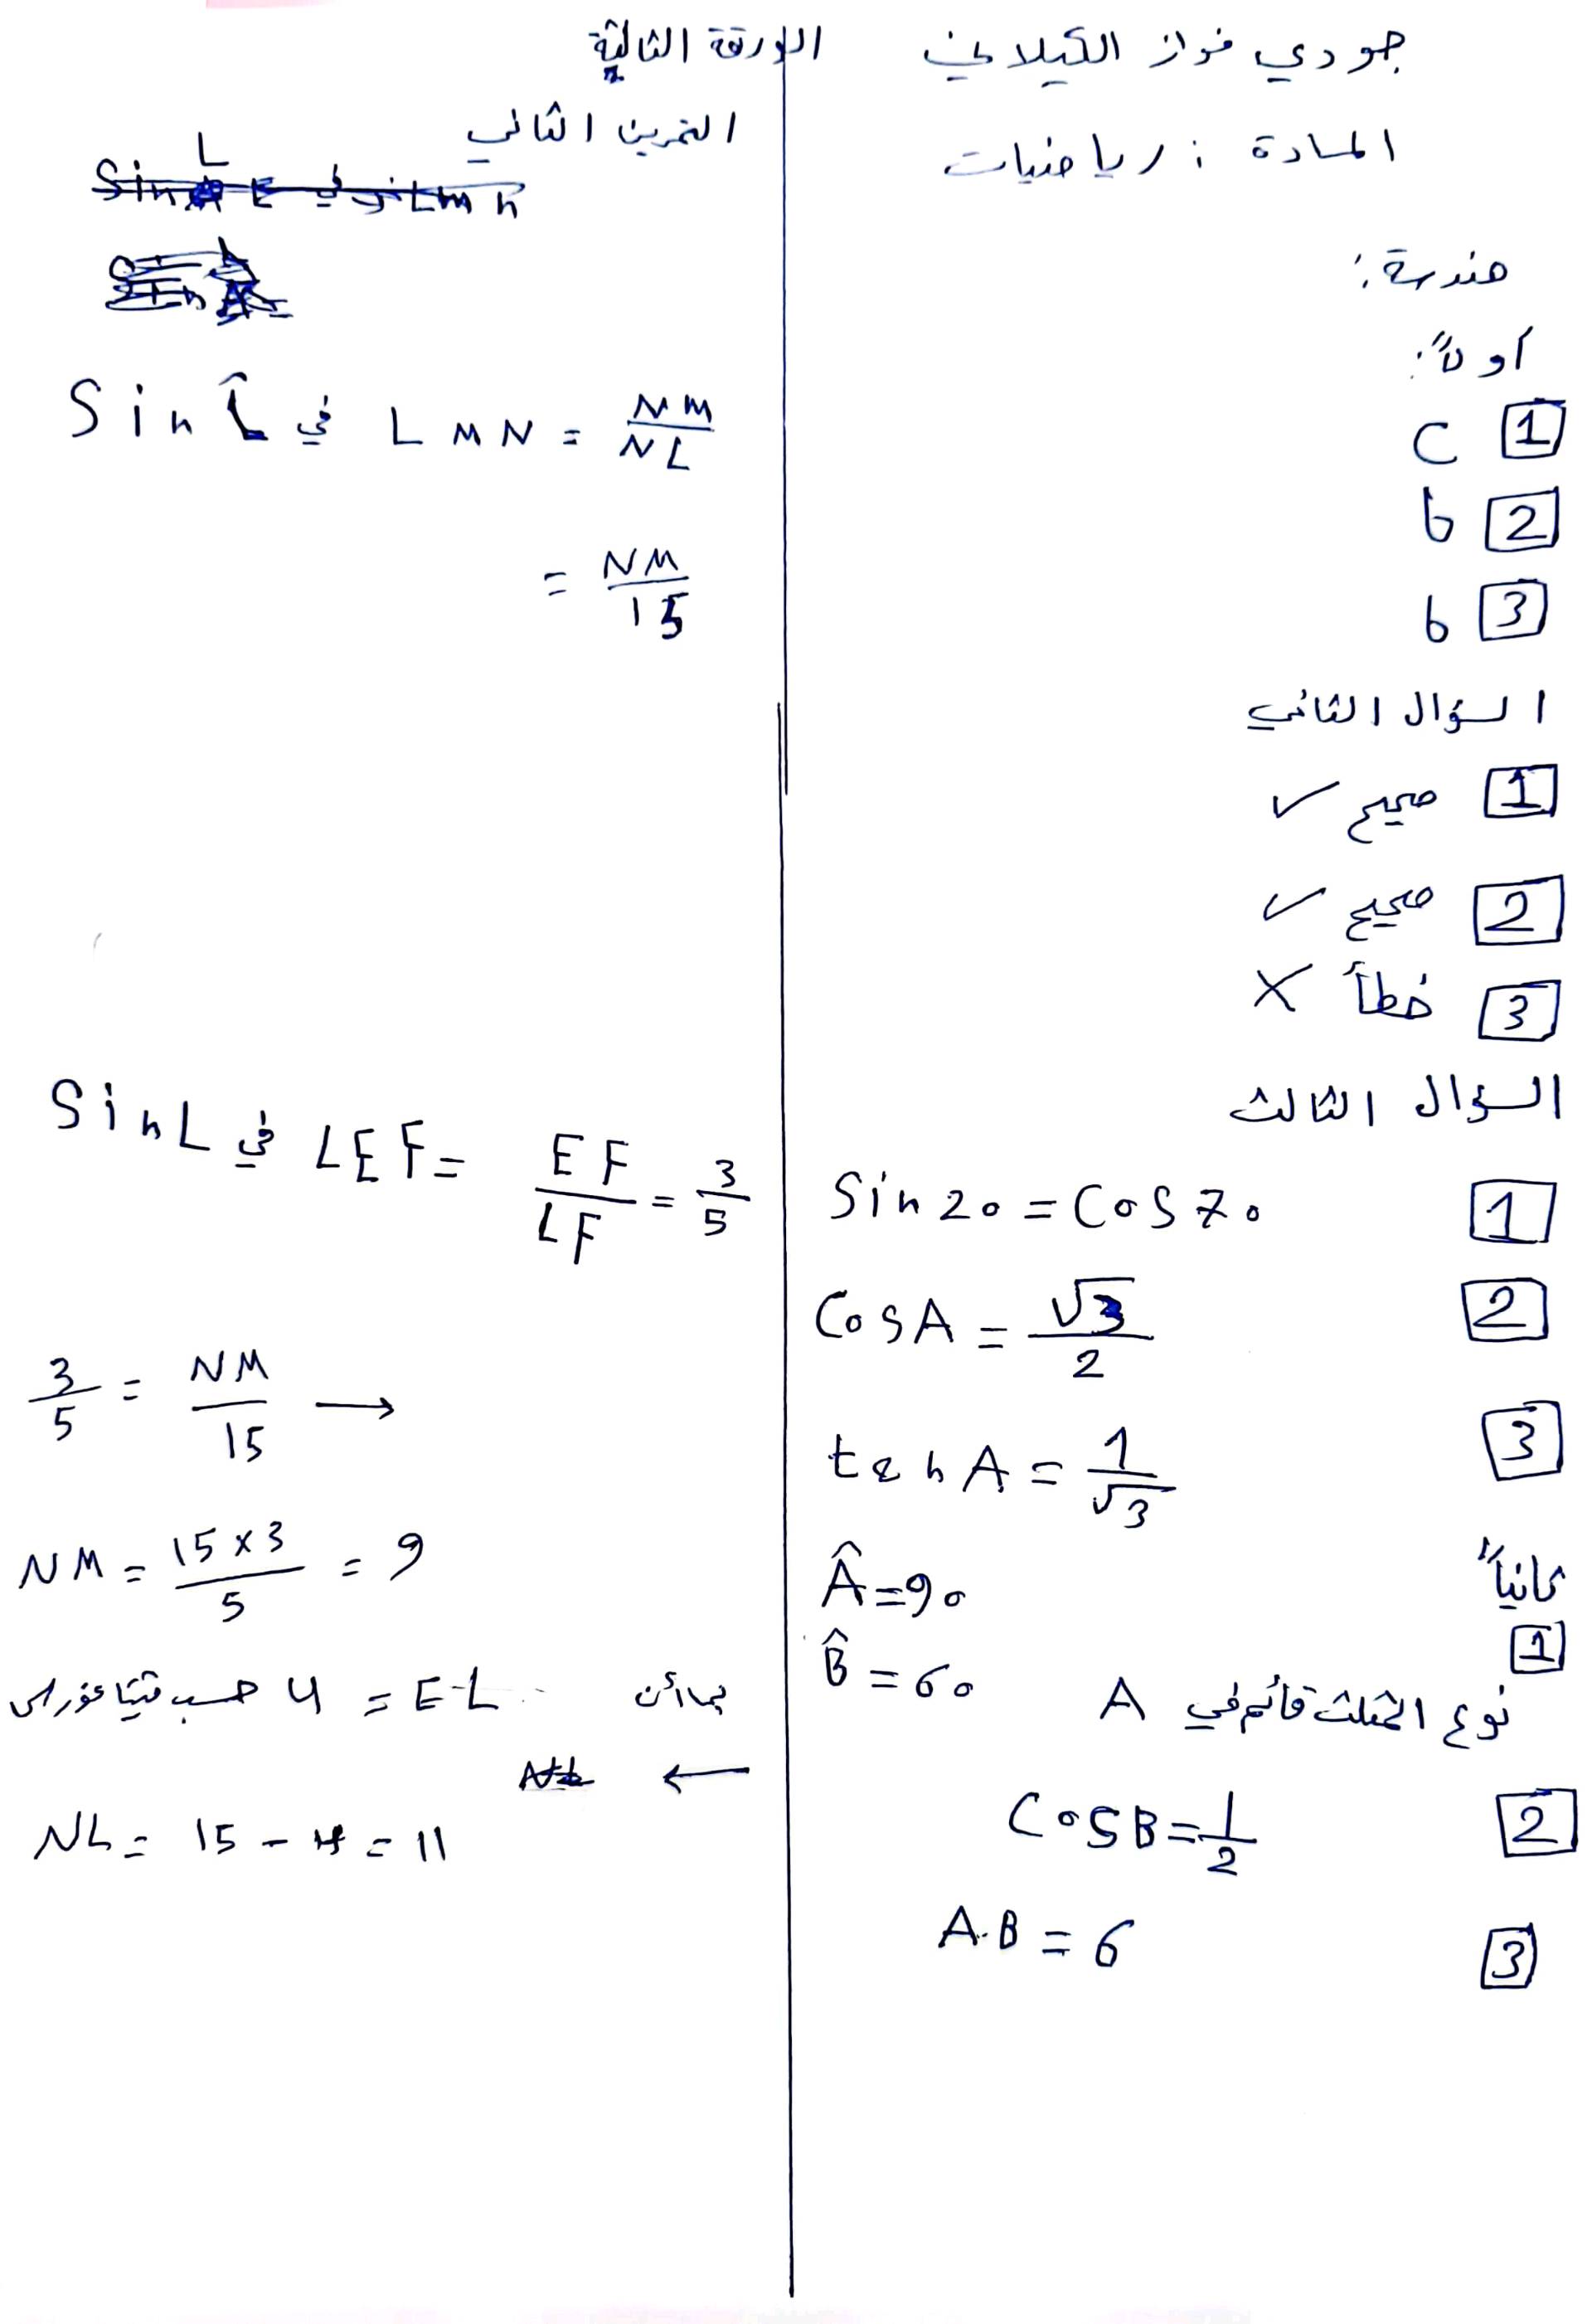 جودي فواز الكيلاني
المادة : رياضيات
هندسة :
أولاً :
1 C
2 b
3 b
السؤال الثاني
1 صحيح ✓
2 صحيح ✓
3 خطأ ×
السؤال الثالث
1 Sin 20 = Cos 70
2 Cos A = √3/2
3 tan A = 1/√3
ثانياً
1 Â = 90
B̂ = 60
نوع المثلث قائم في A
2 Cos B = 1/2
3 A.B = 6
الورقة الثالثة
التمرين الثاني
Sin L̂ في L M N = NM/NL
= NM/15
Sin L في LEF = EF/LF = 3/5
3/5 = NM/15 →
NM = 15 × 3/5 = 9
بما أن E-L = 4 حسب فيتاغورس
←
NL = 15 - 4 = 11